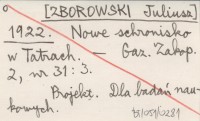 [ZBOROWSKI Juliusz]
1922. Nowe schronisko
w Tatrach. — Gaz. Zakop.
2, nr 31 : 3.
Projekt. Dla badań nau-
kowych.